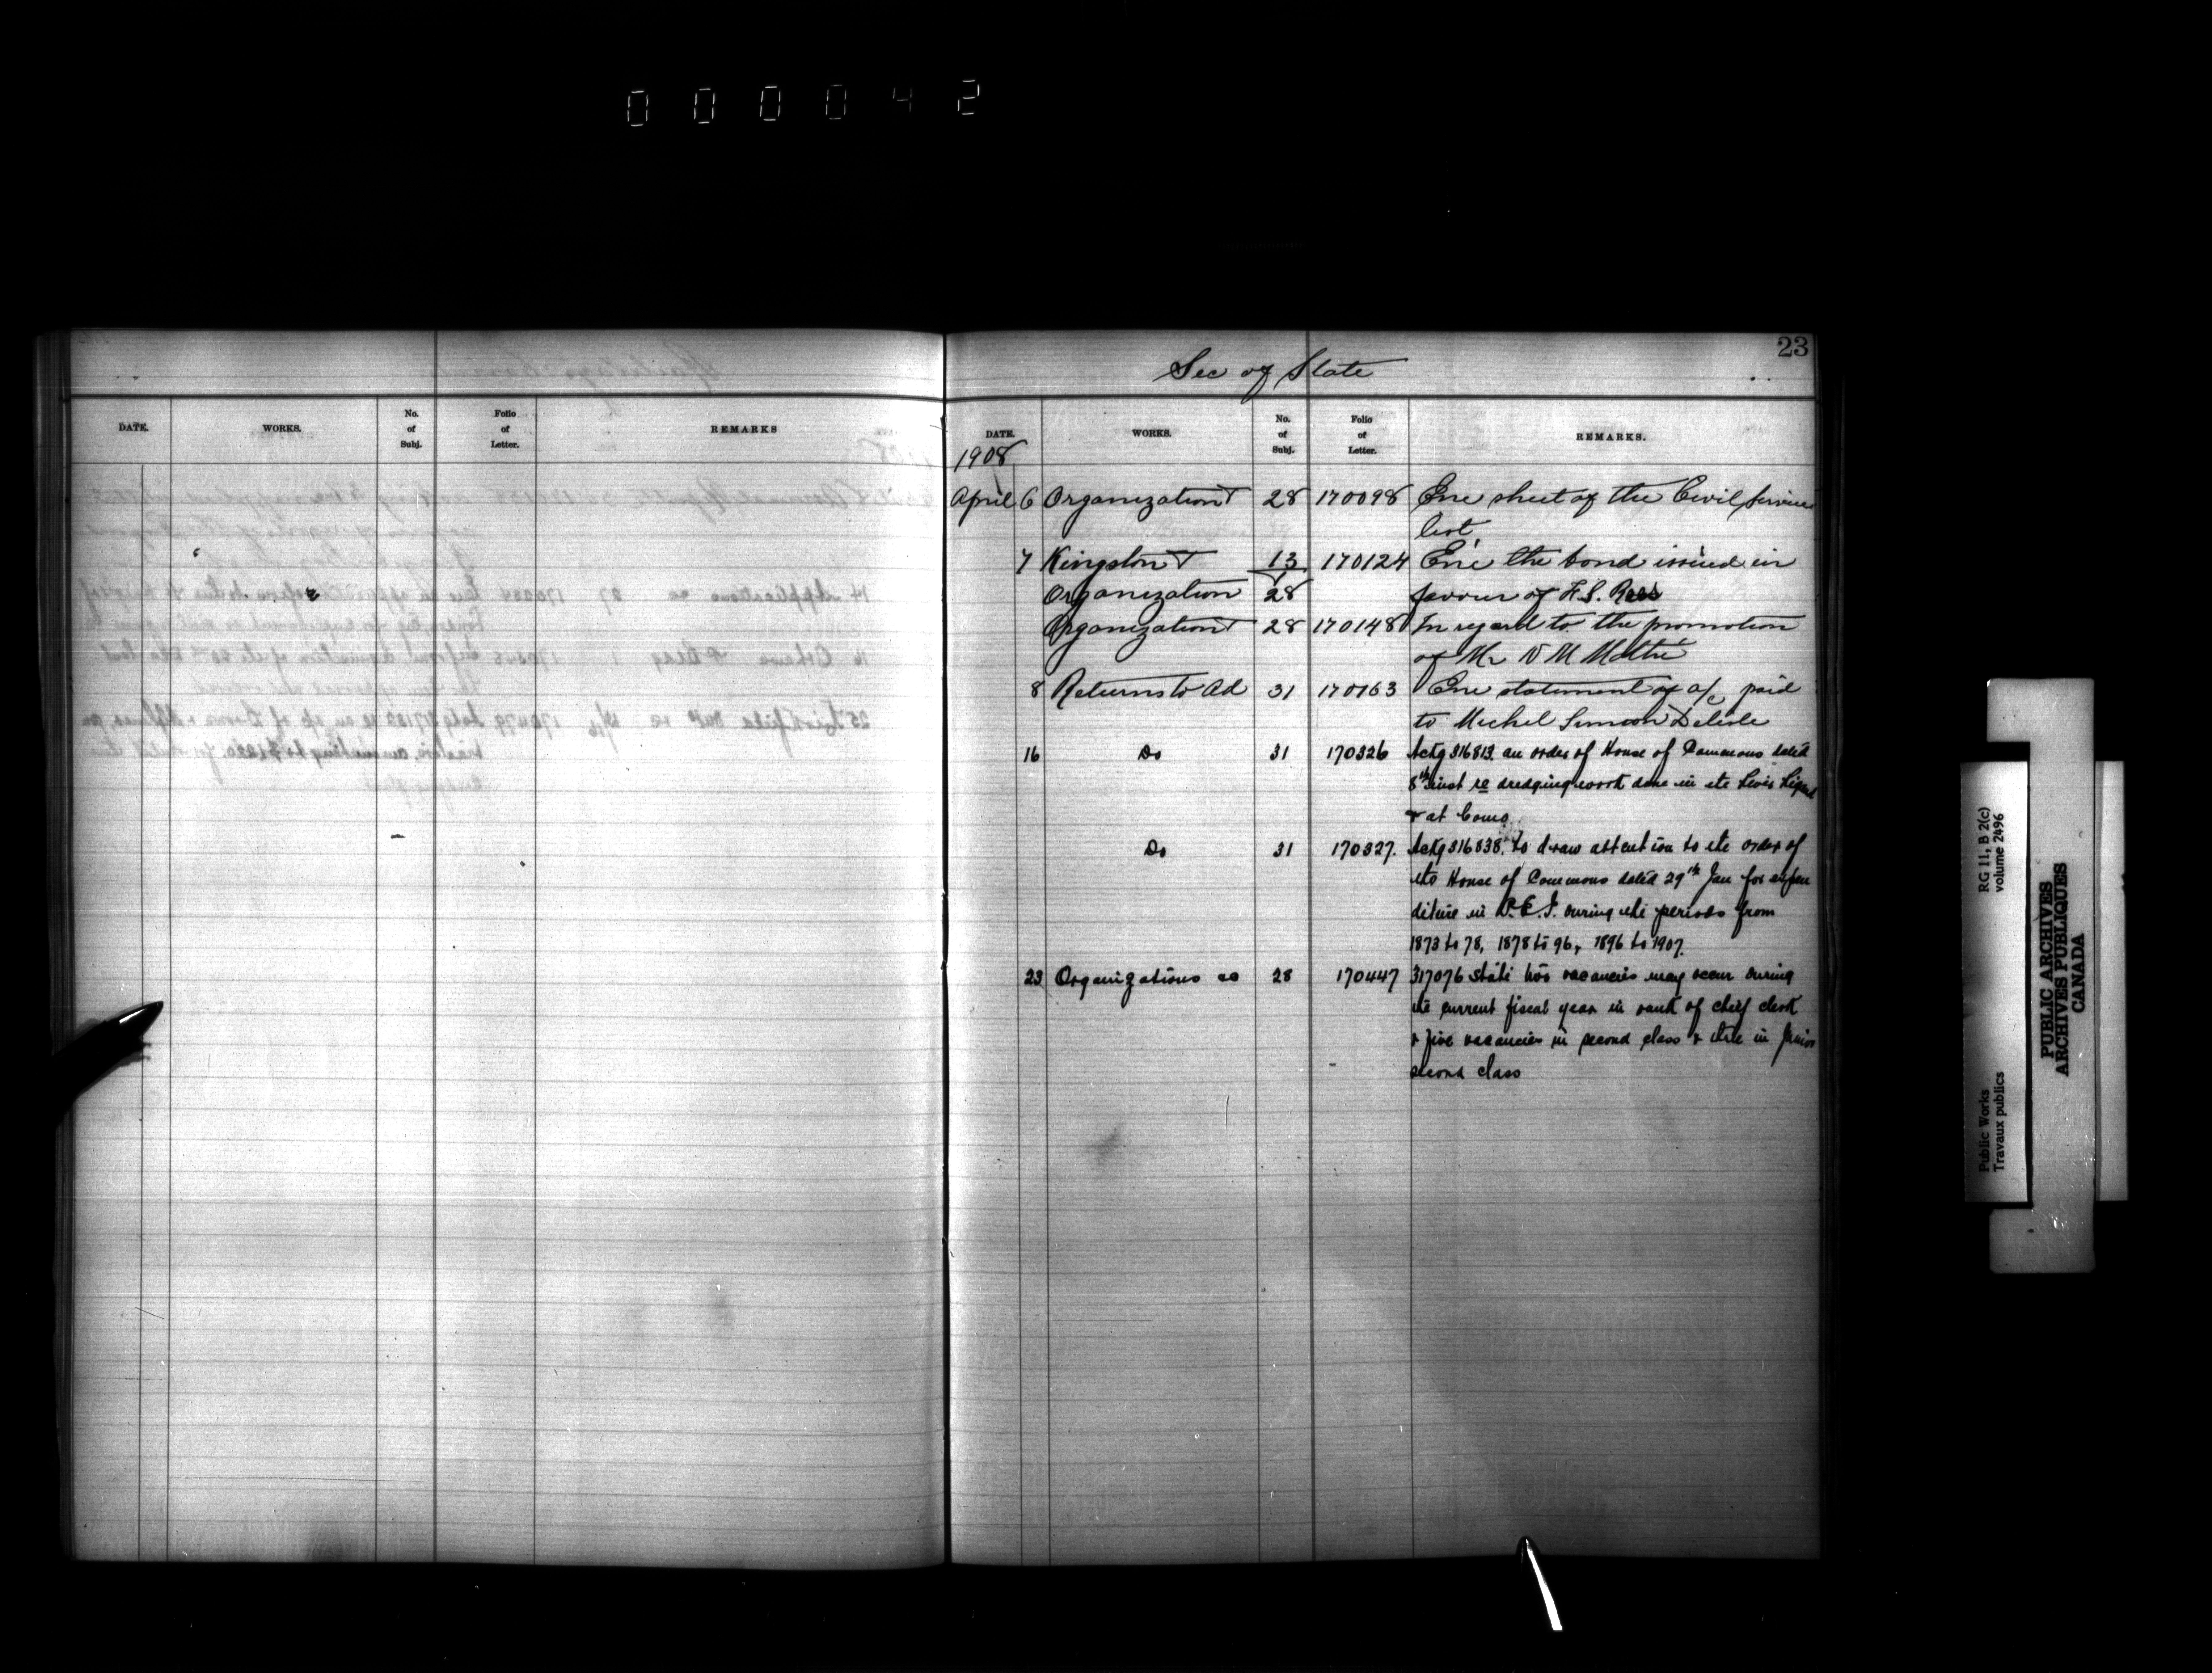 000042
23
Sec of State
DATE. WORKS. No. of Subj. Folio of Letter. REMARKS
DATE. WORKS. No. of Subj. Folio of Letter. REMARKS.
1908
April 6 Organization 28 170098 Enc sheet of the Civil Service
list
7 Kingston 13 170124 Enc the bond issued in
Organization 28 favour of F.S. Rees
Organization 28 170148 In regard to the promotion
of Mr
8 Returns to Ad 31 170163 Enc statement of a/c paid
to Michel Simeon Delisle
16 Do 31 170326 Ackg 316813 an order of House of Commons dated
8th inst re dredging work done in the Levis
& at Como
Do 31 170327. Ackg 316838. to draw attention to the order of
the House of Commons dated 29th Jan for expen
diture in P.E.I. during the periods from
1873 to 78, 1878 to 96, 1896 to 1907.
23 Organizations 28 170447 317076 State two vacancies may occur during
the current fiscal year in rank of chief clerk
& five vacancies in second class & in Junior
second class
Public Works RG 11, B 2(c)
Travaux publics volume 2496
PUBLIC ARCHIVES
ARCHIVES PUBLIQUES
CANADA